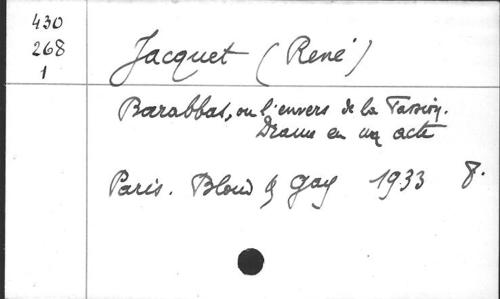 430
268
1
Jacquet (René)
Barabbas, ou l'envers de la Passion.
Drame en un acte
Paris. Bloud & Gay 1933 8.